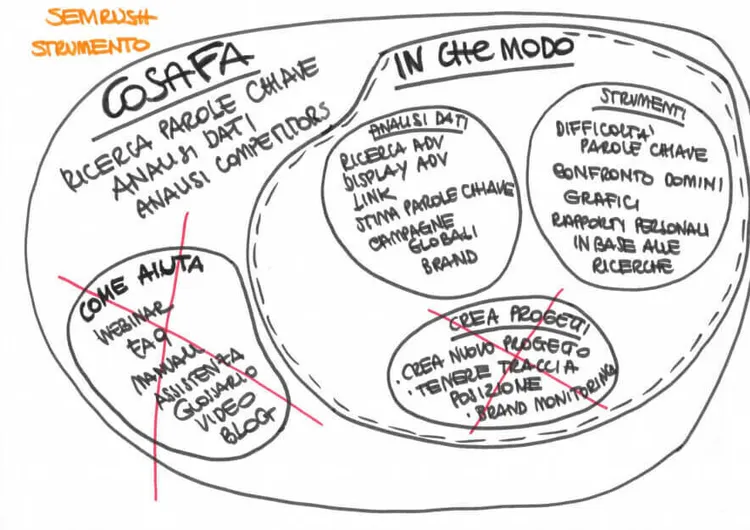 SEMRUSH
STRUMENTO
COSA FA
RICERCA PAROLE CHIAVE
ANALISI DATI
ANALISI COMPETITORS
IN CHE MODO
ANALISI DATI
RICERCA ADV
DISPLAY ADV
LINK
STIMA PAROLE CHIAVE
CAMPAGNE
GLOBALI
BRAND
STRUMENTI
DIFFICOLTA'
PAROLE CHIAVE
CONFRONTO DOMINI
GRAFICI
RAPPORTI PERSONALI
IN BASE ALLE
RICERCHE
COME AIUTA
WEBINAR
FAQ
MANUALI
ASSISTENZA
GLOSSARIO
VIDEO
BLOG
CREA PROGETTI
· CREA NUOVO PROGETTO
· TENERE TRACCIA
POSIZIONE
· BRAND MONITORING